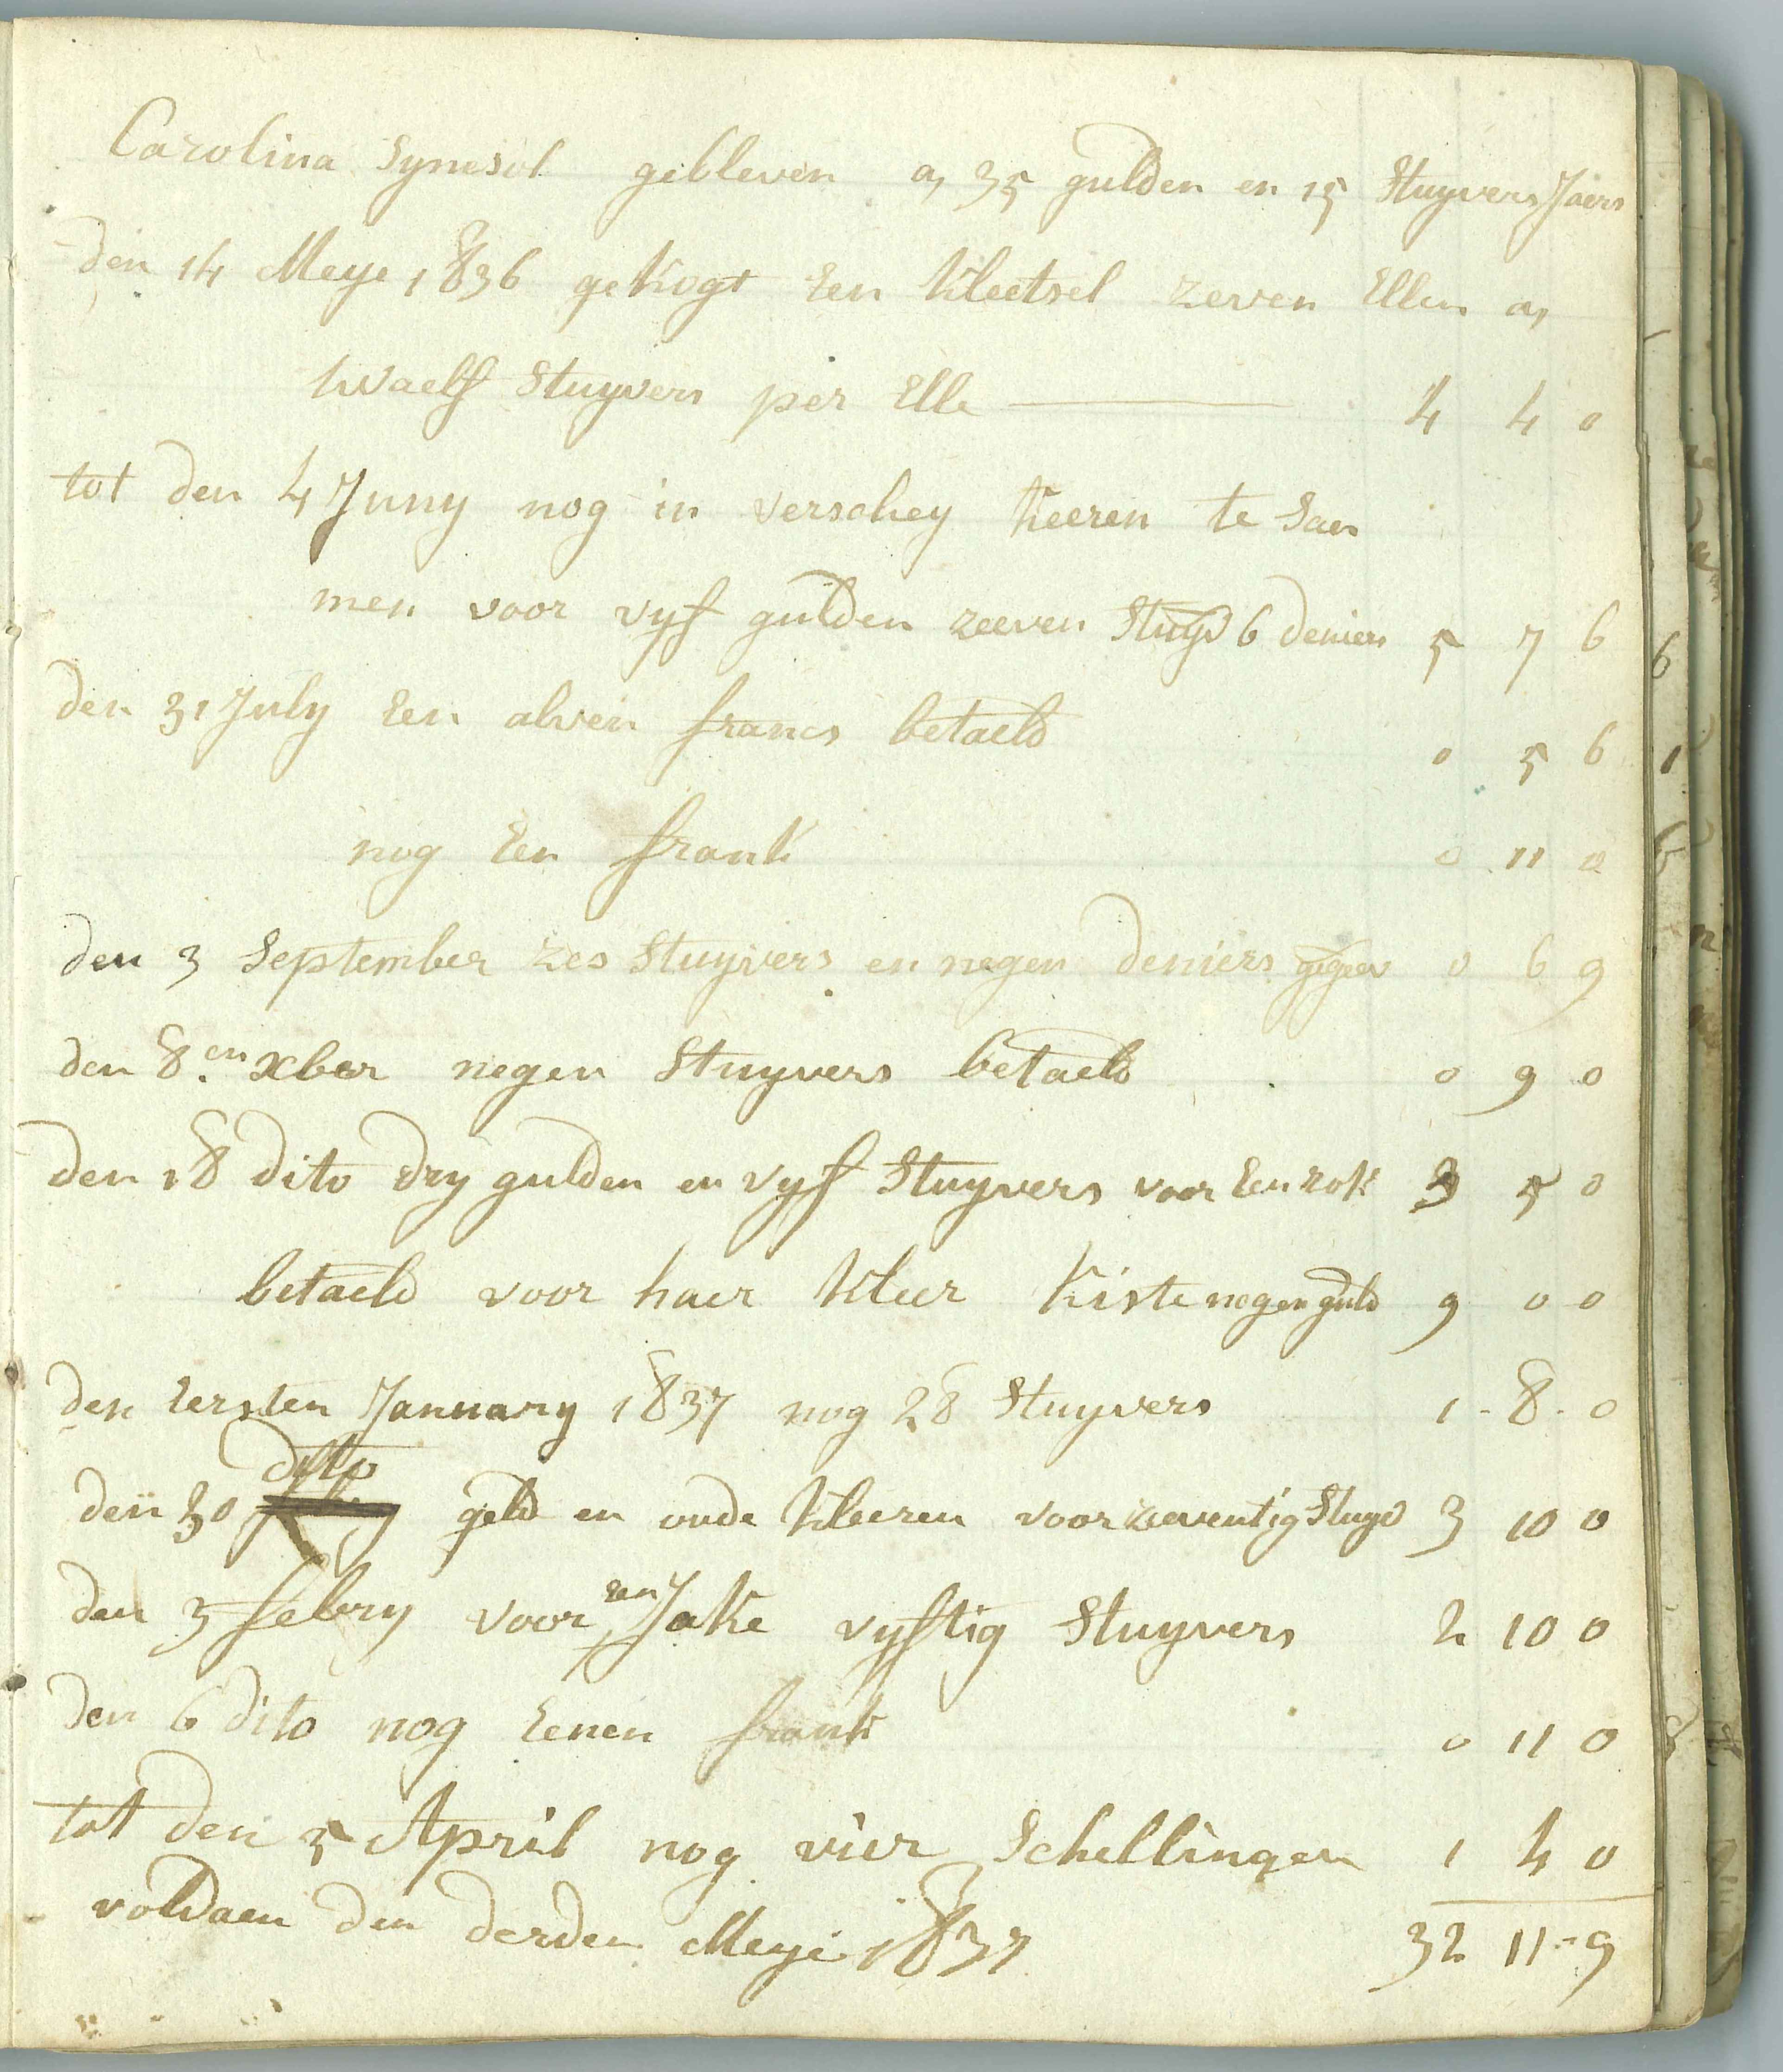 Carolina Synesol gebleven a, 35 gulden en 15 Stuyvers Jaers
den 14 Meye 1836 gekogt Een Kleetsel zeven Ellen a,
twaelf Stuyvers per Elle 4 4 0
tot den 4 Juny nog in verschey Keeren te Saen
men voor vyf gulden zeeven Stuyv 6 deniers 5 7 6
den 31 July Een alven francs betaeld 0 5 6
nog Een frank 0 11 0
den 3 September zes Stuyvers en negen deniers gegeev 0 6 9
den 8.en xber negen Stuyvers betaeld 0 9 0
den 18 dito dry gulden en vyf Stuyvers voor Een rok 3 5 0
betaeld voor haer Kleer Kiste negen guld 9 0 0
den Eersten January 1837 nog 28 Stuyvers 1-8-0
den 30 dito geld en oude Kleeren voor zeeventig Stuyv 3 10 0
den 3 febry voor een Jake vyftig Stuyvers 2 10 0
den 6 dito nog Eenen frank 0 11 0
tot den 5 April nog vier Schellingen 1 4 0
voldaen den derden Meye 1837 32 11-9